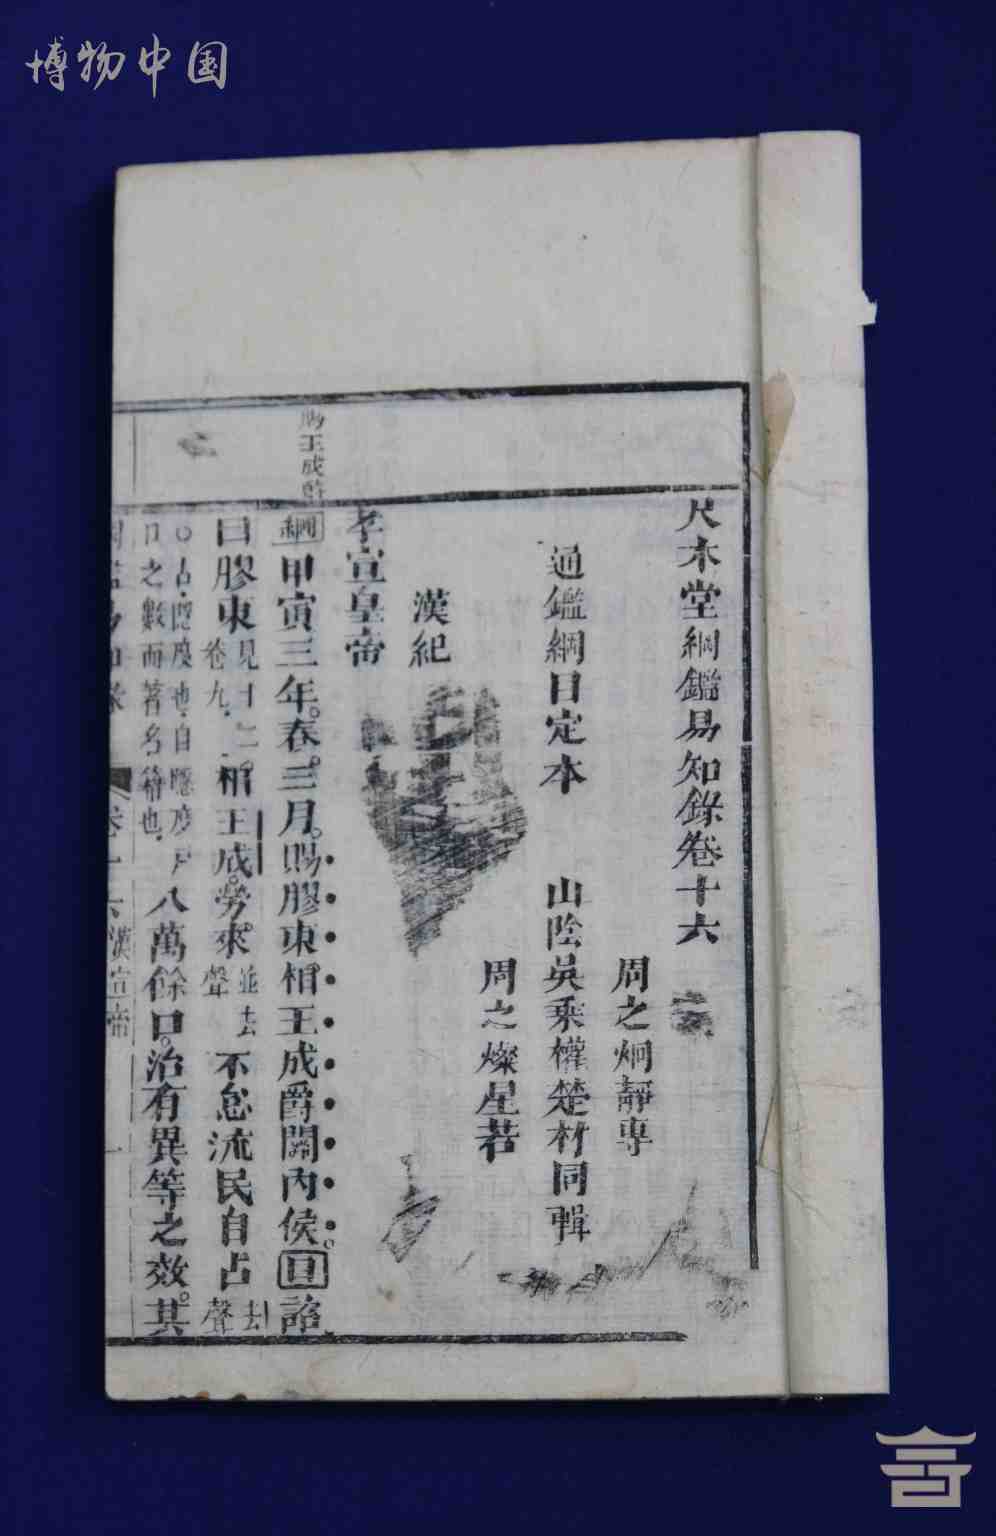 博物中国
尺木堂綱鑑易知錄卷十六
周之炯靜專
通鑑綱目定本 山陰吳乘權楚材同輯
周之燦星若
漢紀
孝宣皇帝
賜王成爵
綱甲寅三年。春。三月。賜膠東相王成爵關內侯。目詔
曰膠東見十二卷九。相王成。勞來並去聲不怠流民自占去聲
八萬餘口。治有異等之效。其
口之數而著名籍也。
卷十六 漢宣帝 一